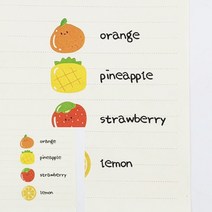 orange
pineapple
strawberry
lemon
orange
pineapple
strawberry
lemon